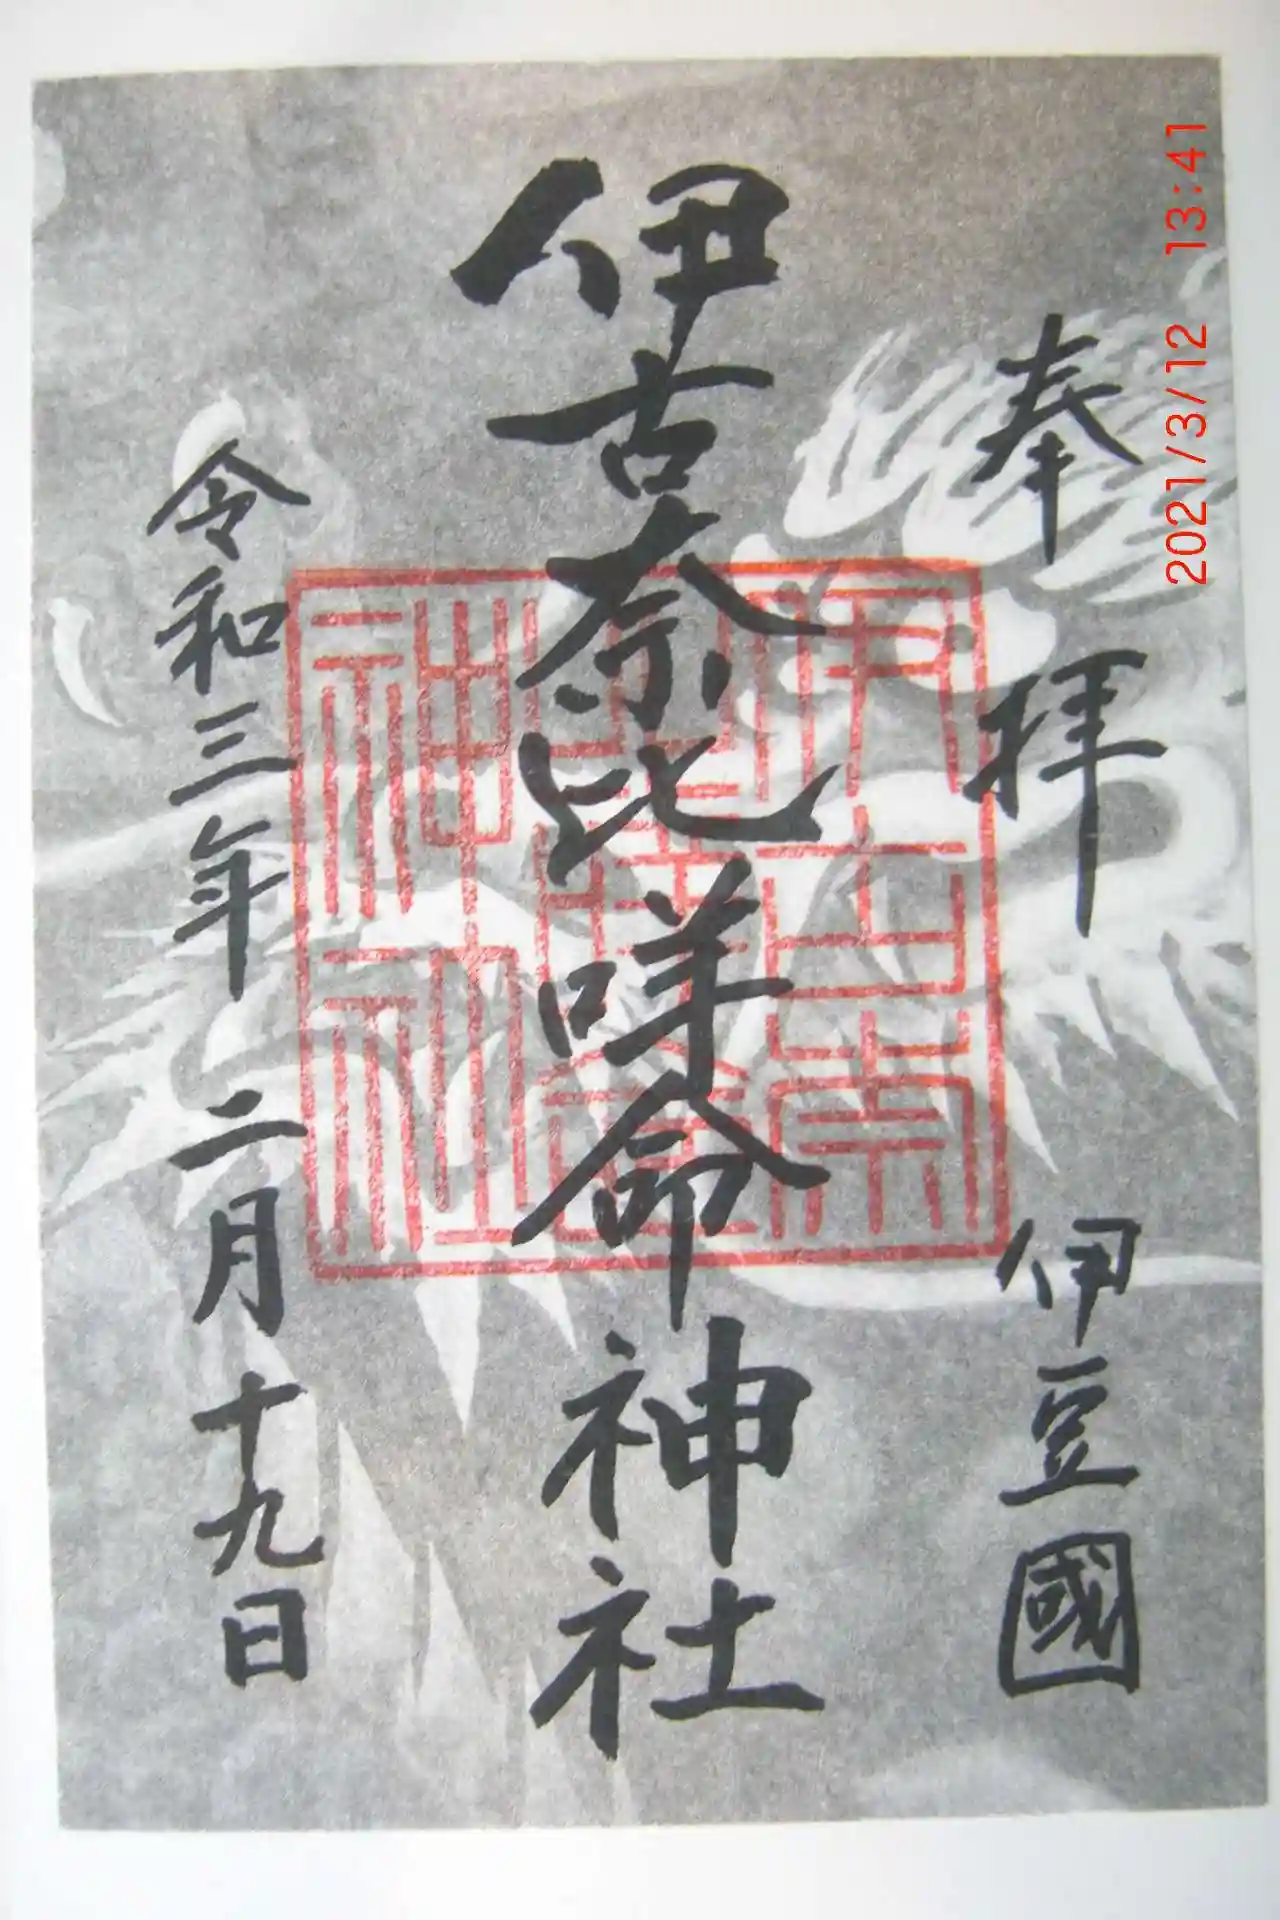 奉拝 伊豆國
伊古奈比咩命神社
令和三年二月十九日
伊古奈
比咩命
神社
2021/3/12 13:41